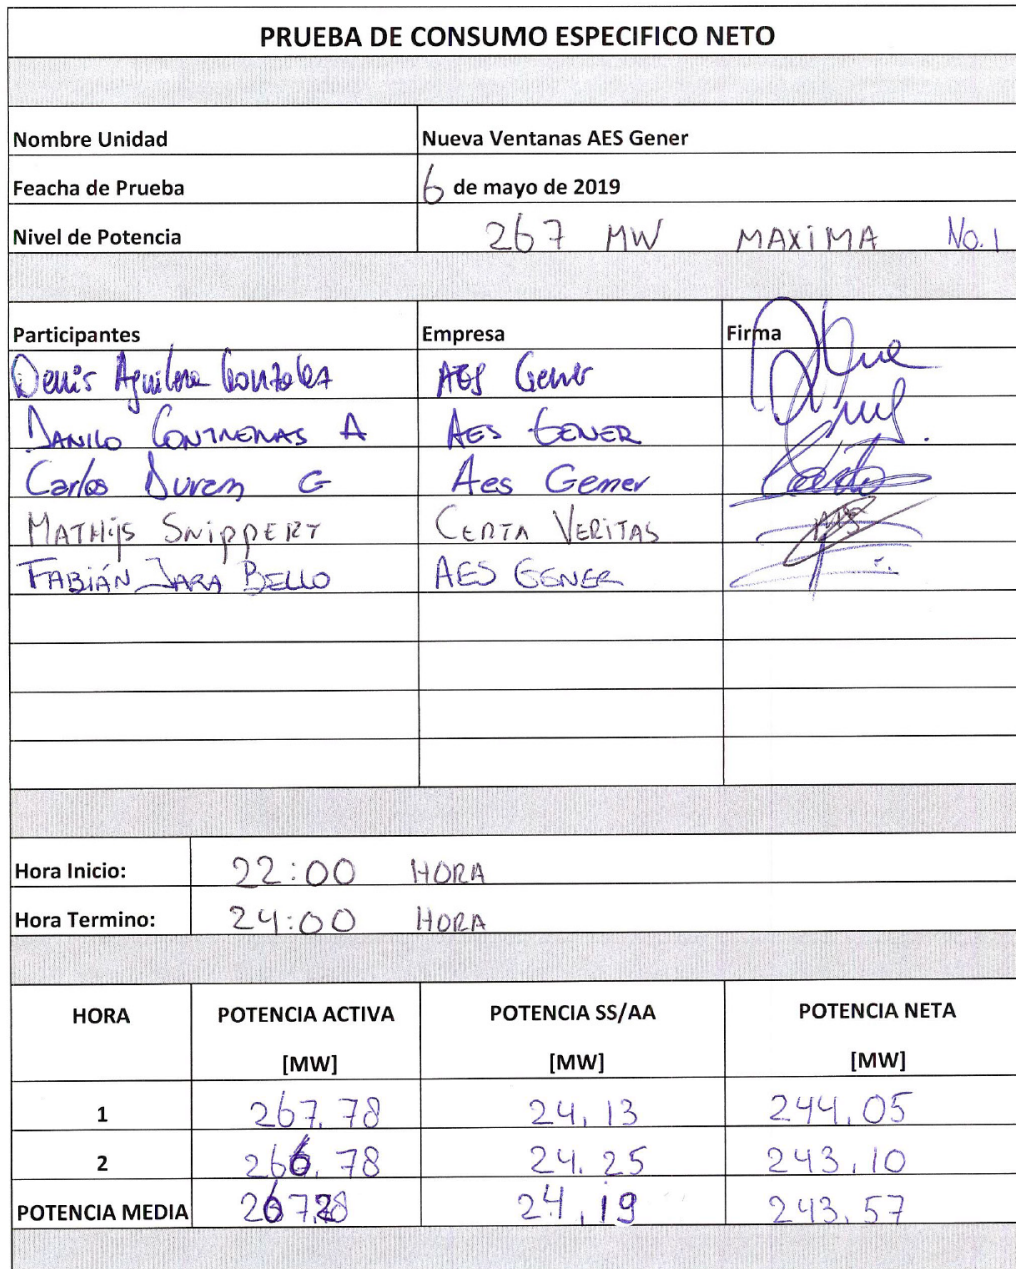 PRUEBA DE CONSUMO ESPECIFICO NETO
Nombre Unidad Nueva Ventanas AES Gener
Feacha de Prueba 6 de mayo de 2019
Nivel de Potencia 267 MW MAXIMA No. 1
Participantes Empresa Firma
Denis Aguilera Gonzalez AES Gener
DANILO CONTRERAS A AES GENER
Carlos Duran G Aes Gener
MATHIJS SNIPPERT CERTA VERITAS
FABIÁN JARA BELLO AES GENER
Hora Inicio: 22:00 HORA
Hora Termino: 24:00 HORA
HORA POTENCIA ACTIVA POTENCIA SS/AA POTENCIA NETA
[MW] [MW] [MW]
1 267,78 24,13 244,05
2 266,78 24.25 243,10
POTENCIA MEDIA 267,28 24,19 243,57